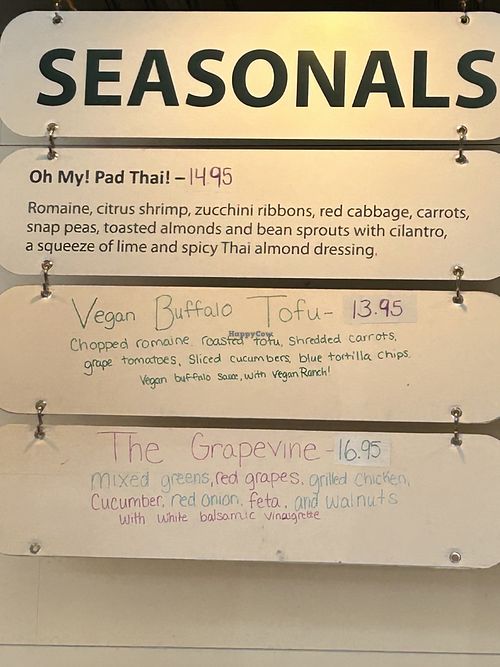 SEASONALS
Oh My! Pad Thai! – 14.95
Romaine, citrus shrimp, zucchini ribbons, red cabbage, carrots,
snap peas, toasted almonds and bean sprouts with cilantro,
a squeeze of lime and spicy Thai almond dressing.
Vegan Buffalo Tofu- 13.95
HappyCow
Chopped romaine, roasted tofu, shredded carrots,
grape tomatoes, Sliced cucumbers, blue tortilla chips,
Vegan buffalo sauce, with Vegan Ranch!
The Grapevine - 16.95
mixed greens, red grapes, grilled chicken,
Cucumber, red onion, feta, and walnuts
with white balsamic vinaigrette